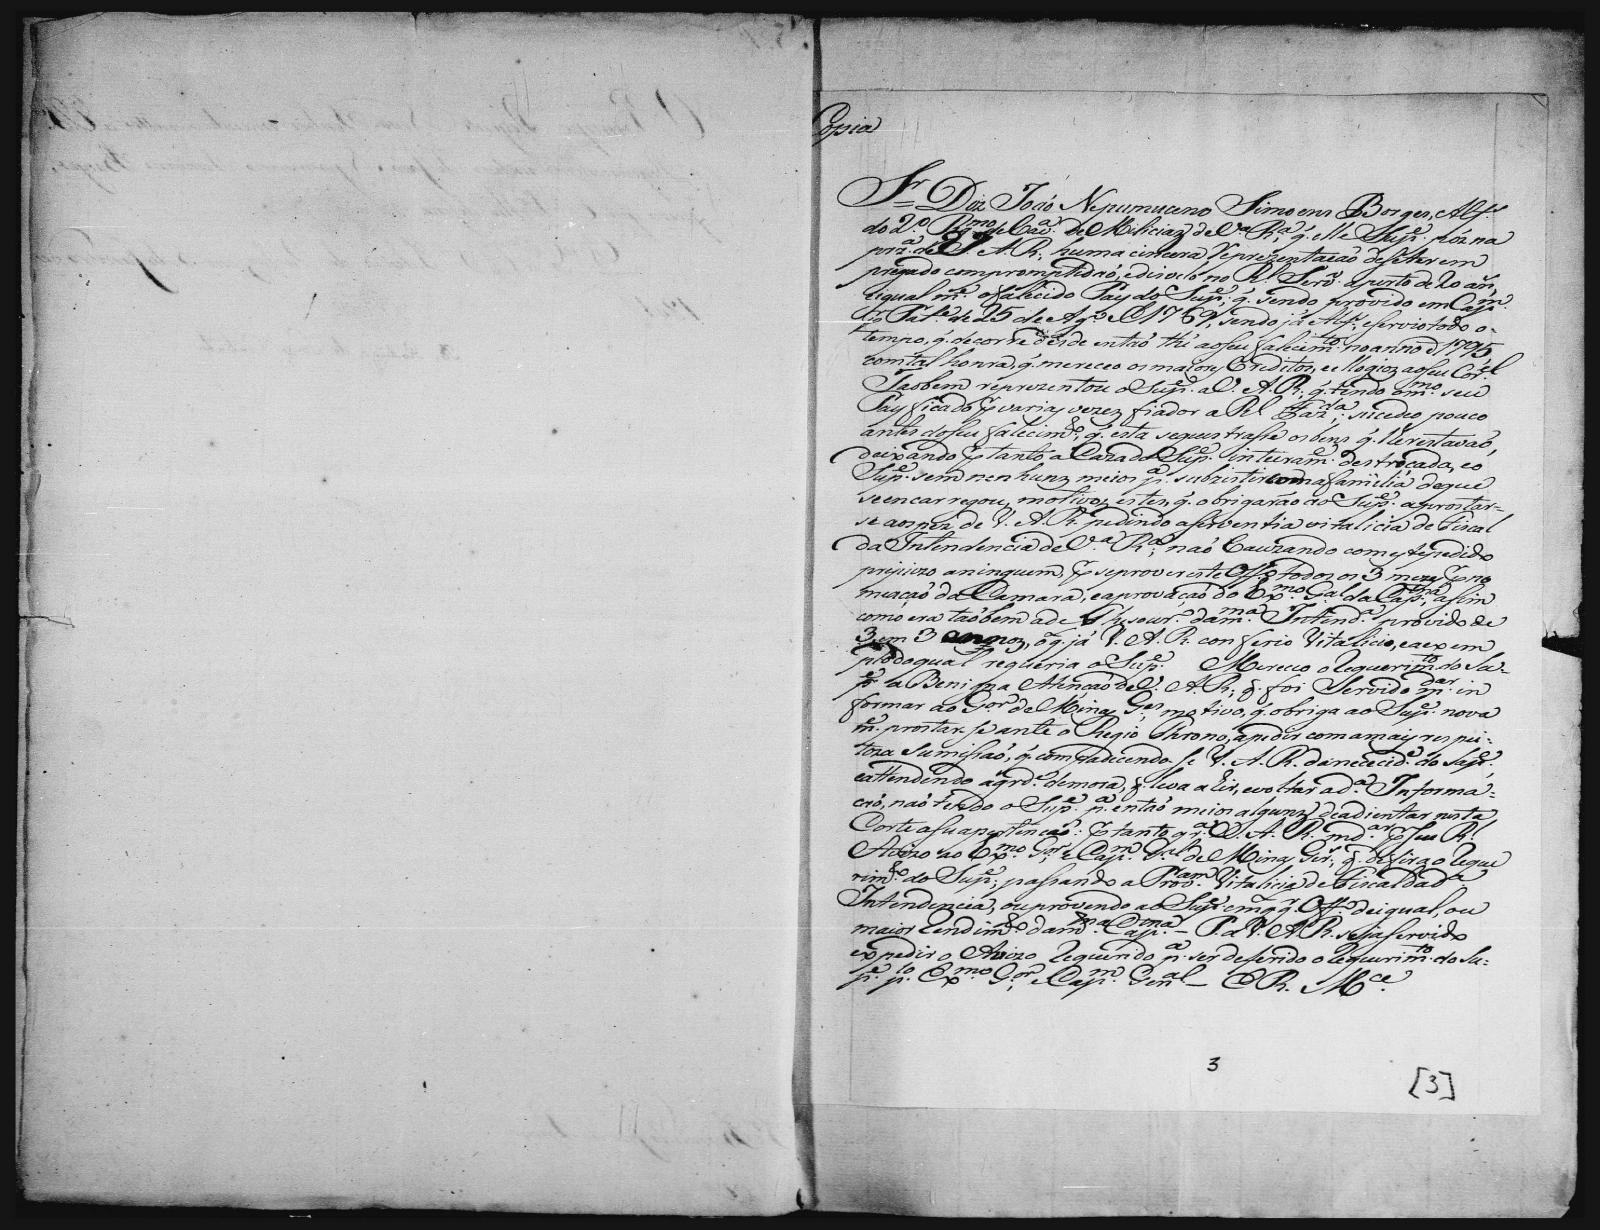 Copia
Sr. Diz Joaõ Nepumuceno Simoens Borges, Alfs.
do 2.º Rg.mo de Cav.a de Milicias de V.a R.a, q. elle Sup.e póz na
prz.a de V. A. R. huma cincera reprezentacaõ de se ter em
pregado com promptidaõ, e disvelo no Rl. Serv.o a perto de 20 an.,
e igual m.e o falecido Pay do Sup.e, q. sendo provido em Cap.m
Pat.e de 25 de Ag.o D 1767, sendo já Alfs., e servio todo o-
tempo, q. decorre desde entaõ thé ao seu falecim.to no anno D 1795
com tal honra, q. mereceo os mayores Creditos, e ellogios ao seu Cor.el
Taobem reprezentou o Sup.e a V. A. R., q. tendo o m.mo seu
Pay ficado p varias vezes fiador a Rl. Faz.da, sucedeo pouco
antes do seu falecim.to, q. esta sequestrasse os bens q. lhe restavaõ,
deixando p tanto a Caza do Sup.e inteiram.e destroçada, e o
Sup.e sem nenhuns meios p.a subzistir com a familia de que
se encarregou, motivos estes, q. obrigaraõ ao Sup.e a prostar=
se aos pés de V. A. R. pedindo a serventia vitalicia de Fiscal
da Intendencia de V.a R.a, naõ Cauzando com este pedido
prejuizo a ninguem, p se prover este Off.o todos os 3 mezes p no
meaçaõ da Camara, e aprovaçaõ do Ex.mo G.al da Cap.nia, assim
como era taõbem a de Thesour.o da m.ma Intend.a provido de
3 em 3 annos, o q. já V. A. R. conferio Vitalicio, e a exem
plo do qual requeria o Sup.e Mereceo o Requerim.to do Su=
p.e a Benigna Atençaõ de V. A. R., q. foi Servido m.dar in
formar ao Gor. de Minas G.es, motivo, q. obriga ao Sup.e nova
m.e prostar se ante o Regio Throno, a pedir com a mais respei=
toza Sumissaõ, q. compadecendo se V. A. R. da nececid.e do Sup.e,
e attendendo á grd.e demora, q. leva a hir, e voltar a d.a Informa=
çaõ, naõ tendo o Sup.e p.a entaõ meios alguns de adientar nesta
Corte a sua pertençaõ. P tanto qr.a V. A. R. md.ar p Seu Rl.
Avizo ao Ex.mo Gor. e Cap.m G.al de Minas Ger., q. defira o Reque
rim.to do Sup.e, passando a Prov.am Vitalicia de Fiscal da d.a
Intendencia, ou provendo ao Sup.e em q.q.r Off.o de igual, ou
maior Rendim.to da m.ma Cap.nia - P. a V. A. R. seja servido
expedir o Avizo Requerido p.a ser deferido o Requerim.to do Su=
p.e p.lo Ex.mo Gor., e Cap.m Gen.al - E R. M.ce
3
[3]